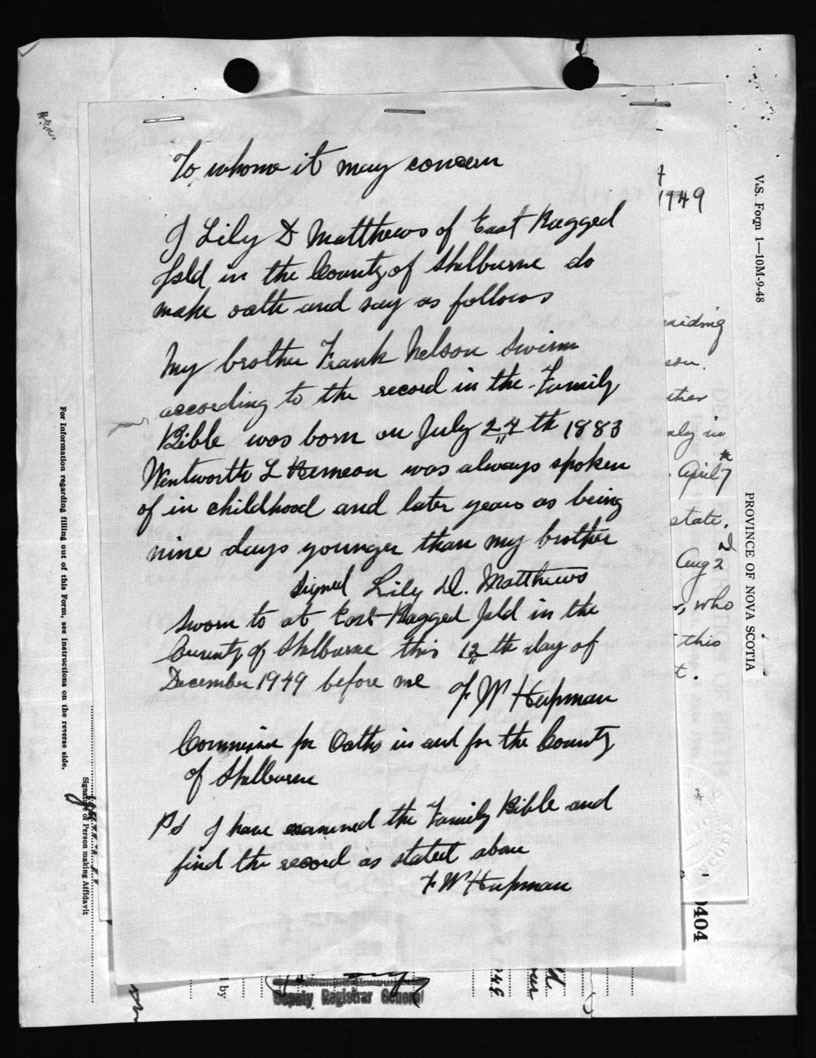 To whome it may concern
I Lily D Matthews of East Ragged
Isld in the County of Shelburne do
make oath and say as follows
My brother Frank Nelson Swim
according to the record in the Family
Bible was born on July 24 th 1883
Wentworth L Herneon was always spoken
of in childhood and later years as being
nine days younger than my brother
signed Lily D. Matthews
Sworn to at East Ragged Isld in the
County of Shelburne this 12 th day of
December 1949 before me F W Hupman
for Oaths in and for the County
of Shelburne
Ps I have examined the Family Bible and
find the record as stated above
F W Hupman
1949
siding
ther
ly in
April 7
state.
Aug 2
, who
this
t.
V.S. Form 1—10M-9-48
PROVINCE OF NOVA SCOTIA
For Information regarding filling out of this Form, see Instructions on the reverse side.
Signature of Person making Affidavit
404
d by
Deputy Registrar General